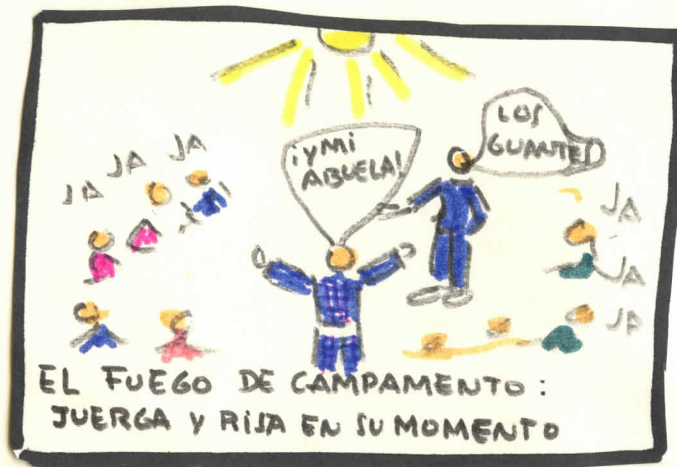 JA JA JA
¡Y MI
ABUELA!
LOS
GUANTES
JA
JA
JA
EL FUEGO DE CAMPAMENTO:
JUERGA Y RISA EN SU MOMENTO